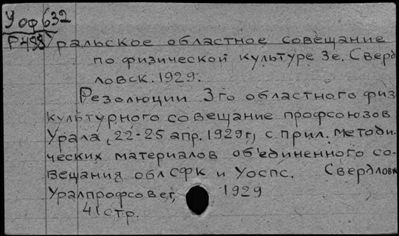 У оф 632
Р-458
Уральское областное совещание
по физической культуре 3е. Сверд
ловск. 1929.
Резолюции 3го областного физ
культурного совещание профсоюзов
Урала, 22-25 апр. 1929г, с прил. методи-
ческих материалов объединенного со-
вещания облСФК и Уоспс. Свердловск
Уралпрофсовет, 1929
41 стр.